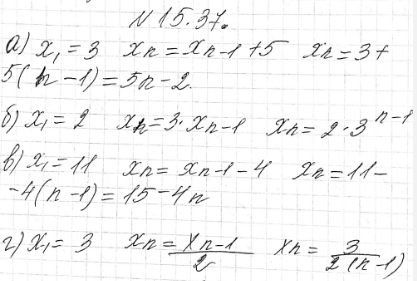 N 15.37.
а) x₁ = 3  xₙ = xₙ₋₁ + 5  xₙ = 3 +
5(n − 1) = 5n − 2.
б) x₁ = 2  xₙ = 3 · xₙ₋₁  xₙ = 2 · 3ⁿ⁻¹
в) x₁ = 11  xₙ = xₙ₋₁ − 4  xₙ = 11 −
−4(n − 1) = 15 − 4n
г) x₁ = 3  xₙ = xₙ₋₁/2  xₙ = 3/2(n − 1)